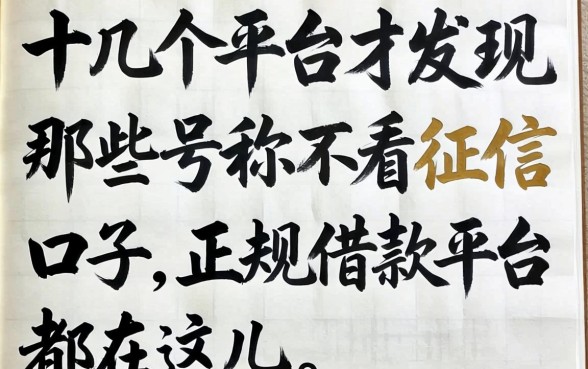 十几个平台才发现
那些号称不看征信
口子,正规借款平台
都在这儿。